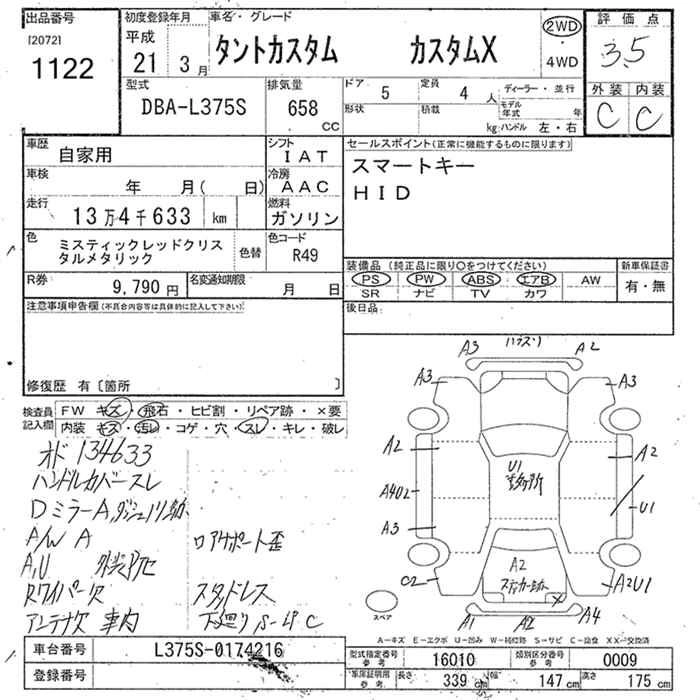 出品番号
[2072]
1122
初度登録年月
平成
21 3月
車名・グレード
タントカスタム カスタムX
2WD
4WD
評価点
3.5
外装 内装
C C
型式
DBA-L375S
排気量
658
CC
ドア 5
定員 4 人
ディーラー・並行
モデル年式 年
形状
積載 kg
ハンドル 左・右
車歴
自家用
シフト
IAT
車検
年 月( 日)
冷房
AAC
走行
13万4千633 km
燃料
ガソリン
色
ミスティックレッドクリス
タルメタリック
色替
色コード
R49
R券
9,790円
名変通知期限
月 日
セールスポイント(正常に機能するものに限ります)
スマートキー
HID
装備品(純正品に限り○をつけてください)
PS PW ABS エアB AW
SR ナビ TV カワ
新車保証書
有・無
後日品:
注意事項申告欄(不具合内容等は具体的に記入して下さい)
修復歴 有〔箇所 〕
検査員
記入欄
FW キズ・飛石・ヒビ割・リペア跡・×要
内装 キズ・汚レ・コゲ・穴・スレ・キレ・破レ
オド 134633
ハンドルカバースレ
DミラーA,
A/W A
A,U
Rワイパー欠
アンテナ欠 車内
ロアサポート歪
スタッドレス
下廻りS-
C
A3 A2
A3 A3
A2 A2
U1
A402 U1
A3
A2
C2 A2U1
A1 A2 A4
スペア
A-キズ E-エクボ U-凹み W-補修跡 S-サビ C-腐食 XX-交換済
車台番号
L375S-0174216
登録番号
型式指定番号
参考
16010
類別区分番号
参考
0009
車庫証明用
参考
長さ 339 cm
幅 147 cm
高さ 175 cm